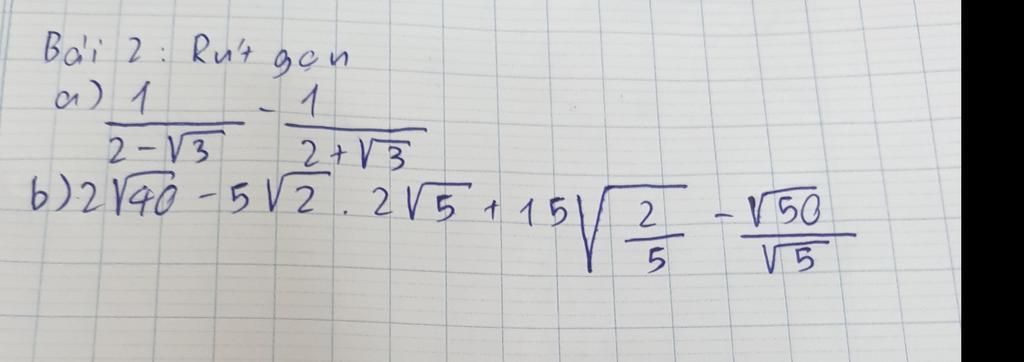 Bài 2: Rút gọn
a) 1/(2-√3) - 1/(2+√3)
b) 2√40 - 5√2 . 2√5 + 15√(2/5) - √50/√5